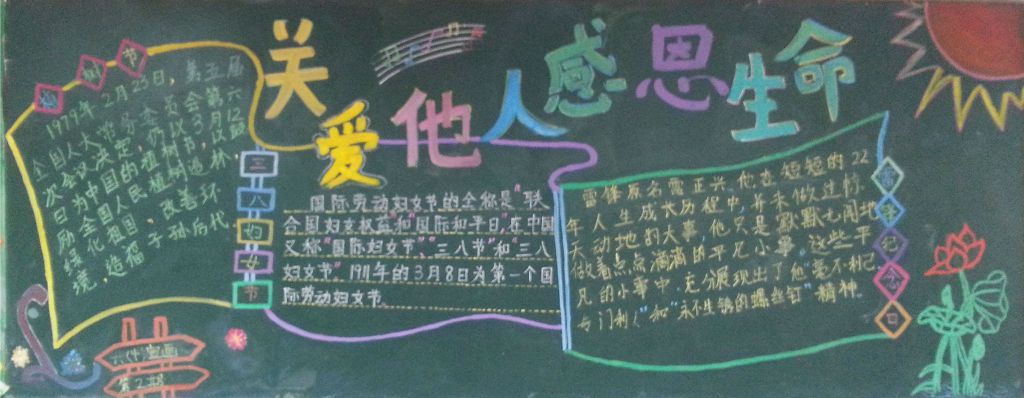 关爱他人感恩生命
植树节
1979年2月23日，第五届
全国人大常务委员会第六
次会议决定，仍以3月12
日为中国的植树节，以鼓
励全国人民植树造林，
绿化祖国，改善环
境，造福子孙后代
三八妇女节
国际劳动妇女节的全称是"联
合国妇女权益和国际和平日，在中国
又称"国际妇女节"、"三八节"和"三八
妇女节"1911年的3月8日为第一个国
际劳动妇女节
雷锋纪念日
雷锋原名雷正兴，他在短短的22
年人生成长历程中，并未做过惊
天动地的大事，他只是默默无闻地
做着点点滴滴的平凡小事，这些平
凡的小事中，充分展现出了他"毫不利己
专门利人"和"永不生锈的螺丝钉"精神
第2期